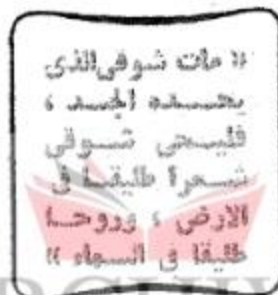 « مات شوقي الذي
يحسده المجد ،
فليحي شوقي
شعرا طليقا في
الارض ، وروحا
طليقا في السماء »